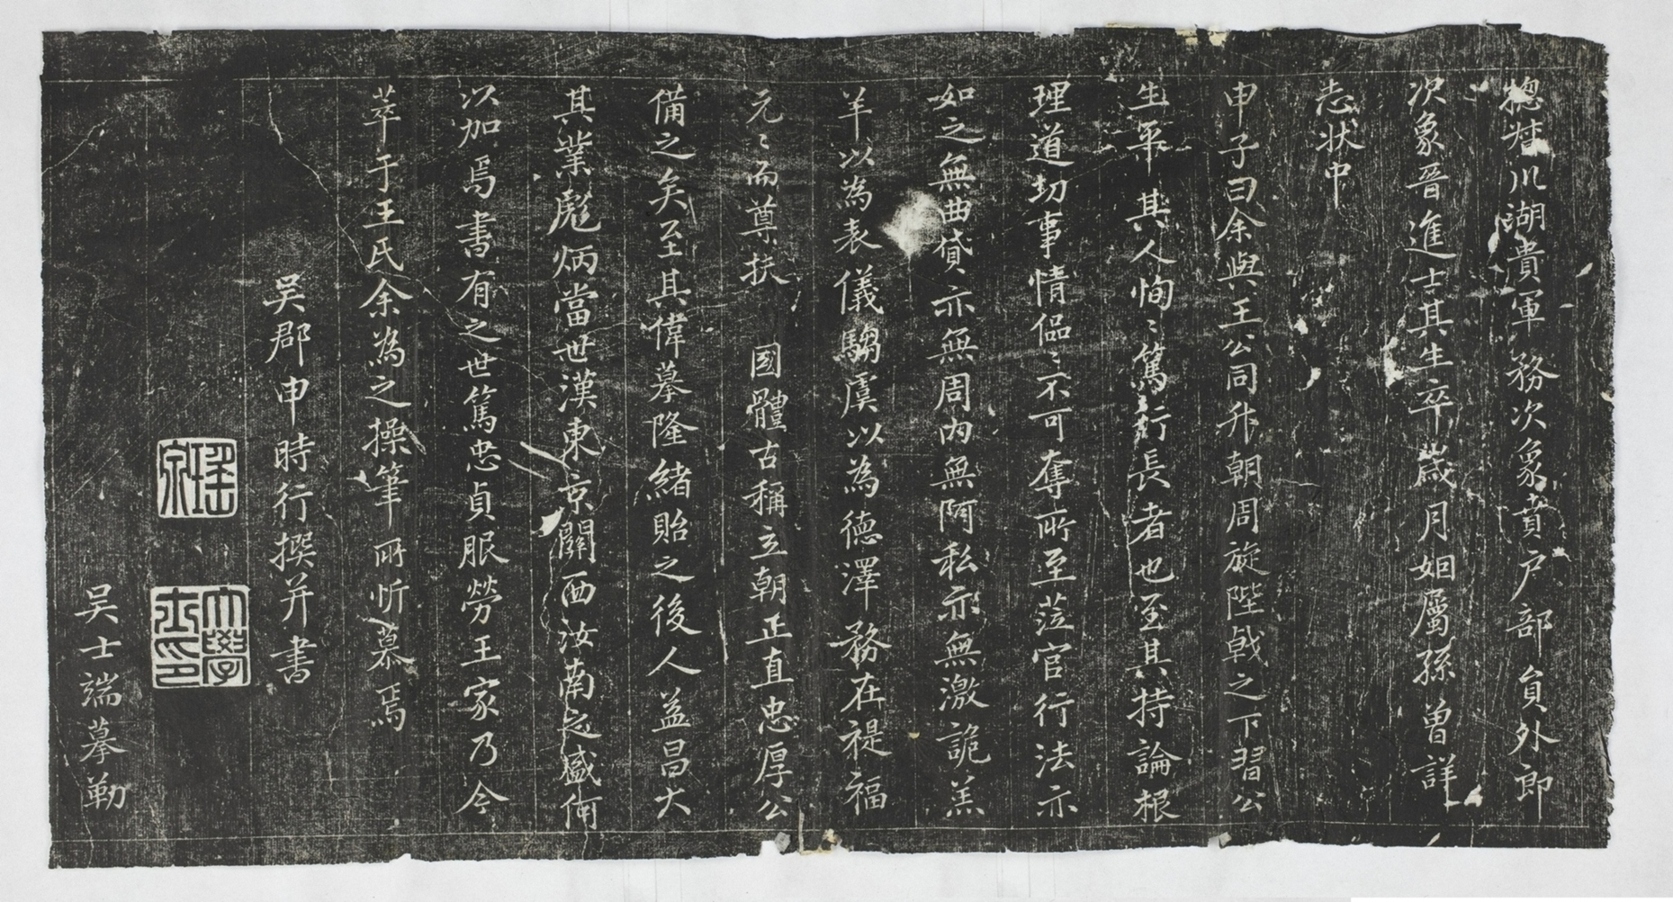 總楚川湖貴軍務次象賁户部貟外郎
次象晉進士其生卒歳月姻屬孫曽詳
志状中
申子曰余與王公同升朝周旋陛戟之下習公
生平其人恂〻篤行長者也至其持論根
理道切事情偘〻不可奪所至蒞官行法示
如之無曲貸亦無周内無阿私亦無激詭羔
羊以為表儀騶虞以為德澤務在禔福
元〻而尊扶國體古稱立朝正直忠厚公
備之矣至其偉摹隆緒貽之後人益昌大
其業彪炳當世漢東京關西汝南之盛何
以加焉書有之世篤忠貞服勞王家乃今
萃于王氏余為之操筆所忻慕焉
吴郡申時行撰并書
瑤泉
大學士印
吴士端摹勒